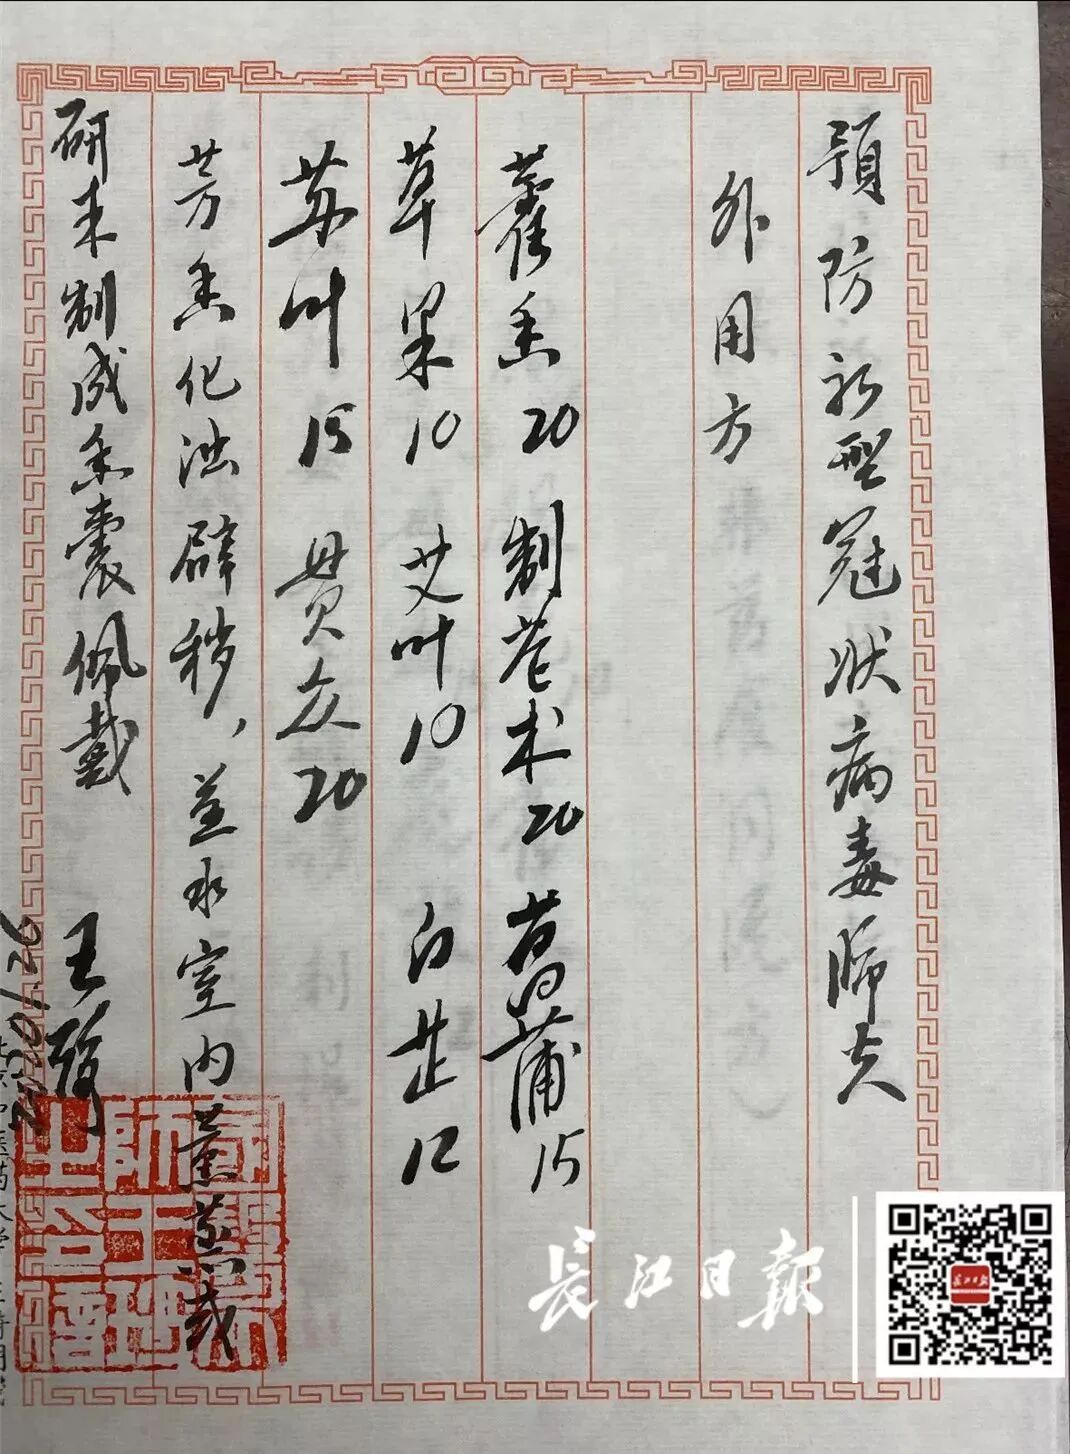 预防新型冠状病毒肺炎
外用方
藿香20 制苍术20 菖蒲15
草果10 艾叶10 白芷12
苏叶15 贯众20
芳香化浊辟秽、煮水室内薰蒸或
研末制成香囊佩戴 王琦
2020.1.26
长江日报